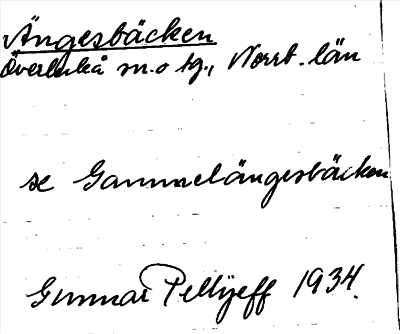 Ängesbäcken
Överluleå sn. o tg., Norrb. län
se Gammelängesbäcken
Gunnar Pellijeff 1934.